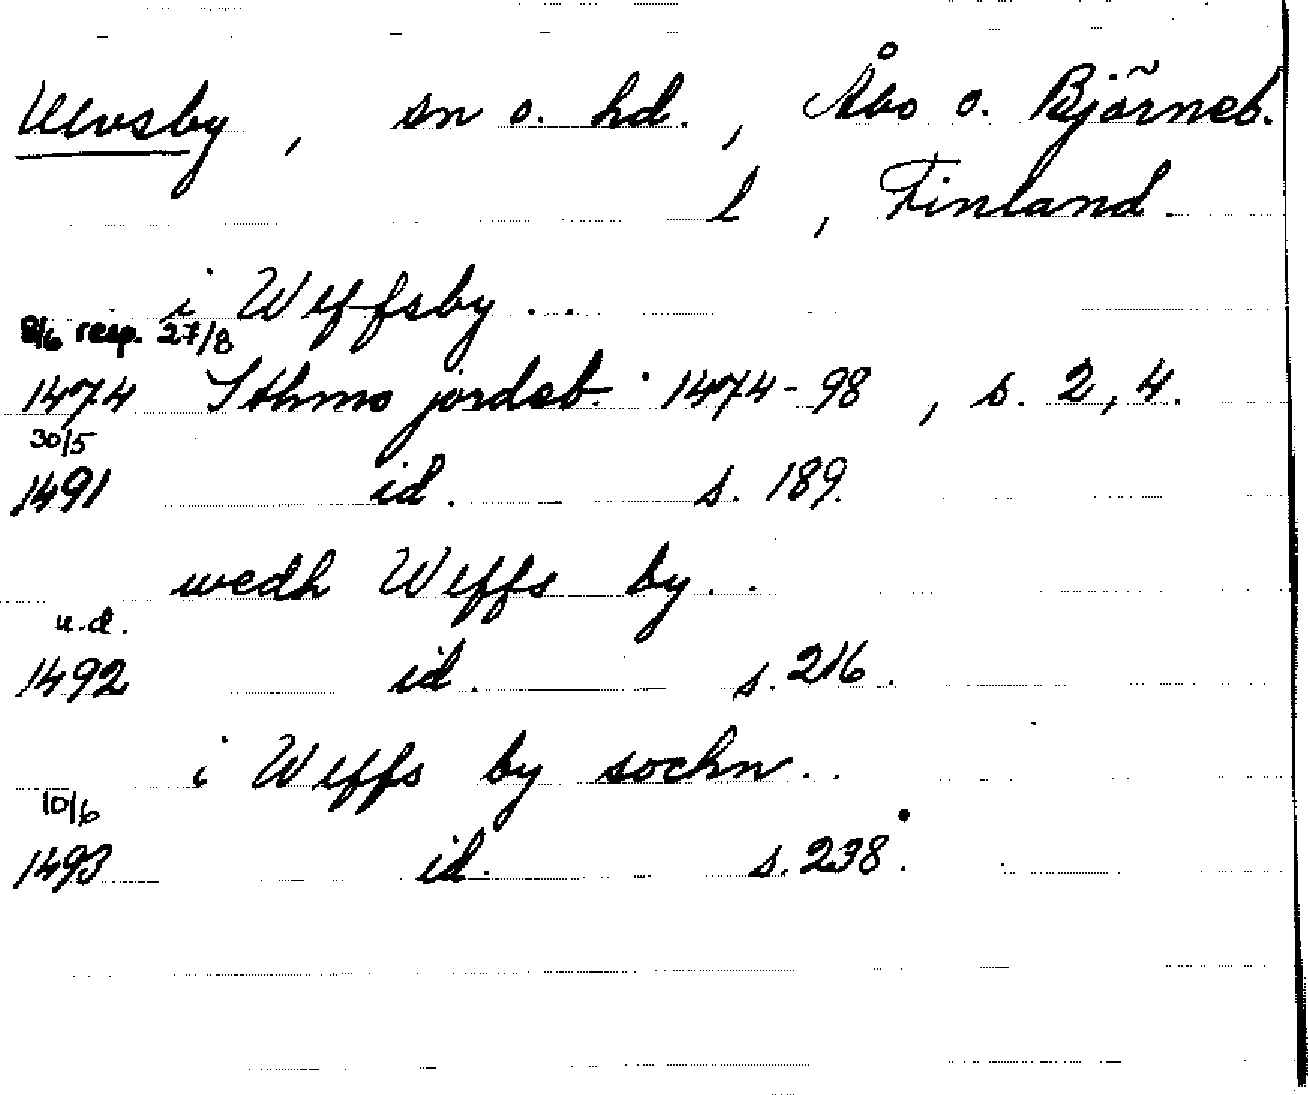 Ulvsby, sn o. hd., Åbo o. Björneb.
l, Finland.
i Wlffsby...
8/6 resp. 27/8
1474 Sthms jordeb. 1474-98, s. 2, 4.
30/5
1491 id. s. 189.
wedh Wlffs by..
u.d.
1492 id. s. 216.
i Wlffs by sochn...
10/6
1493 id. s. 238.